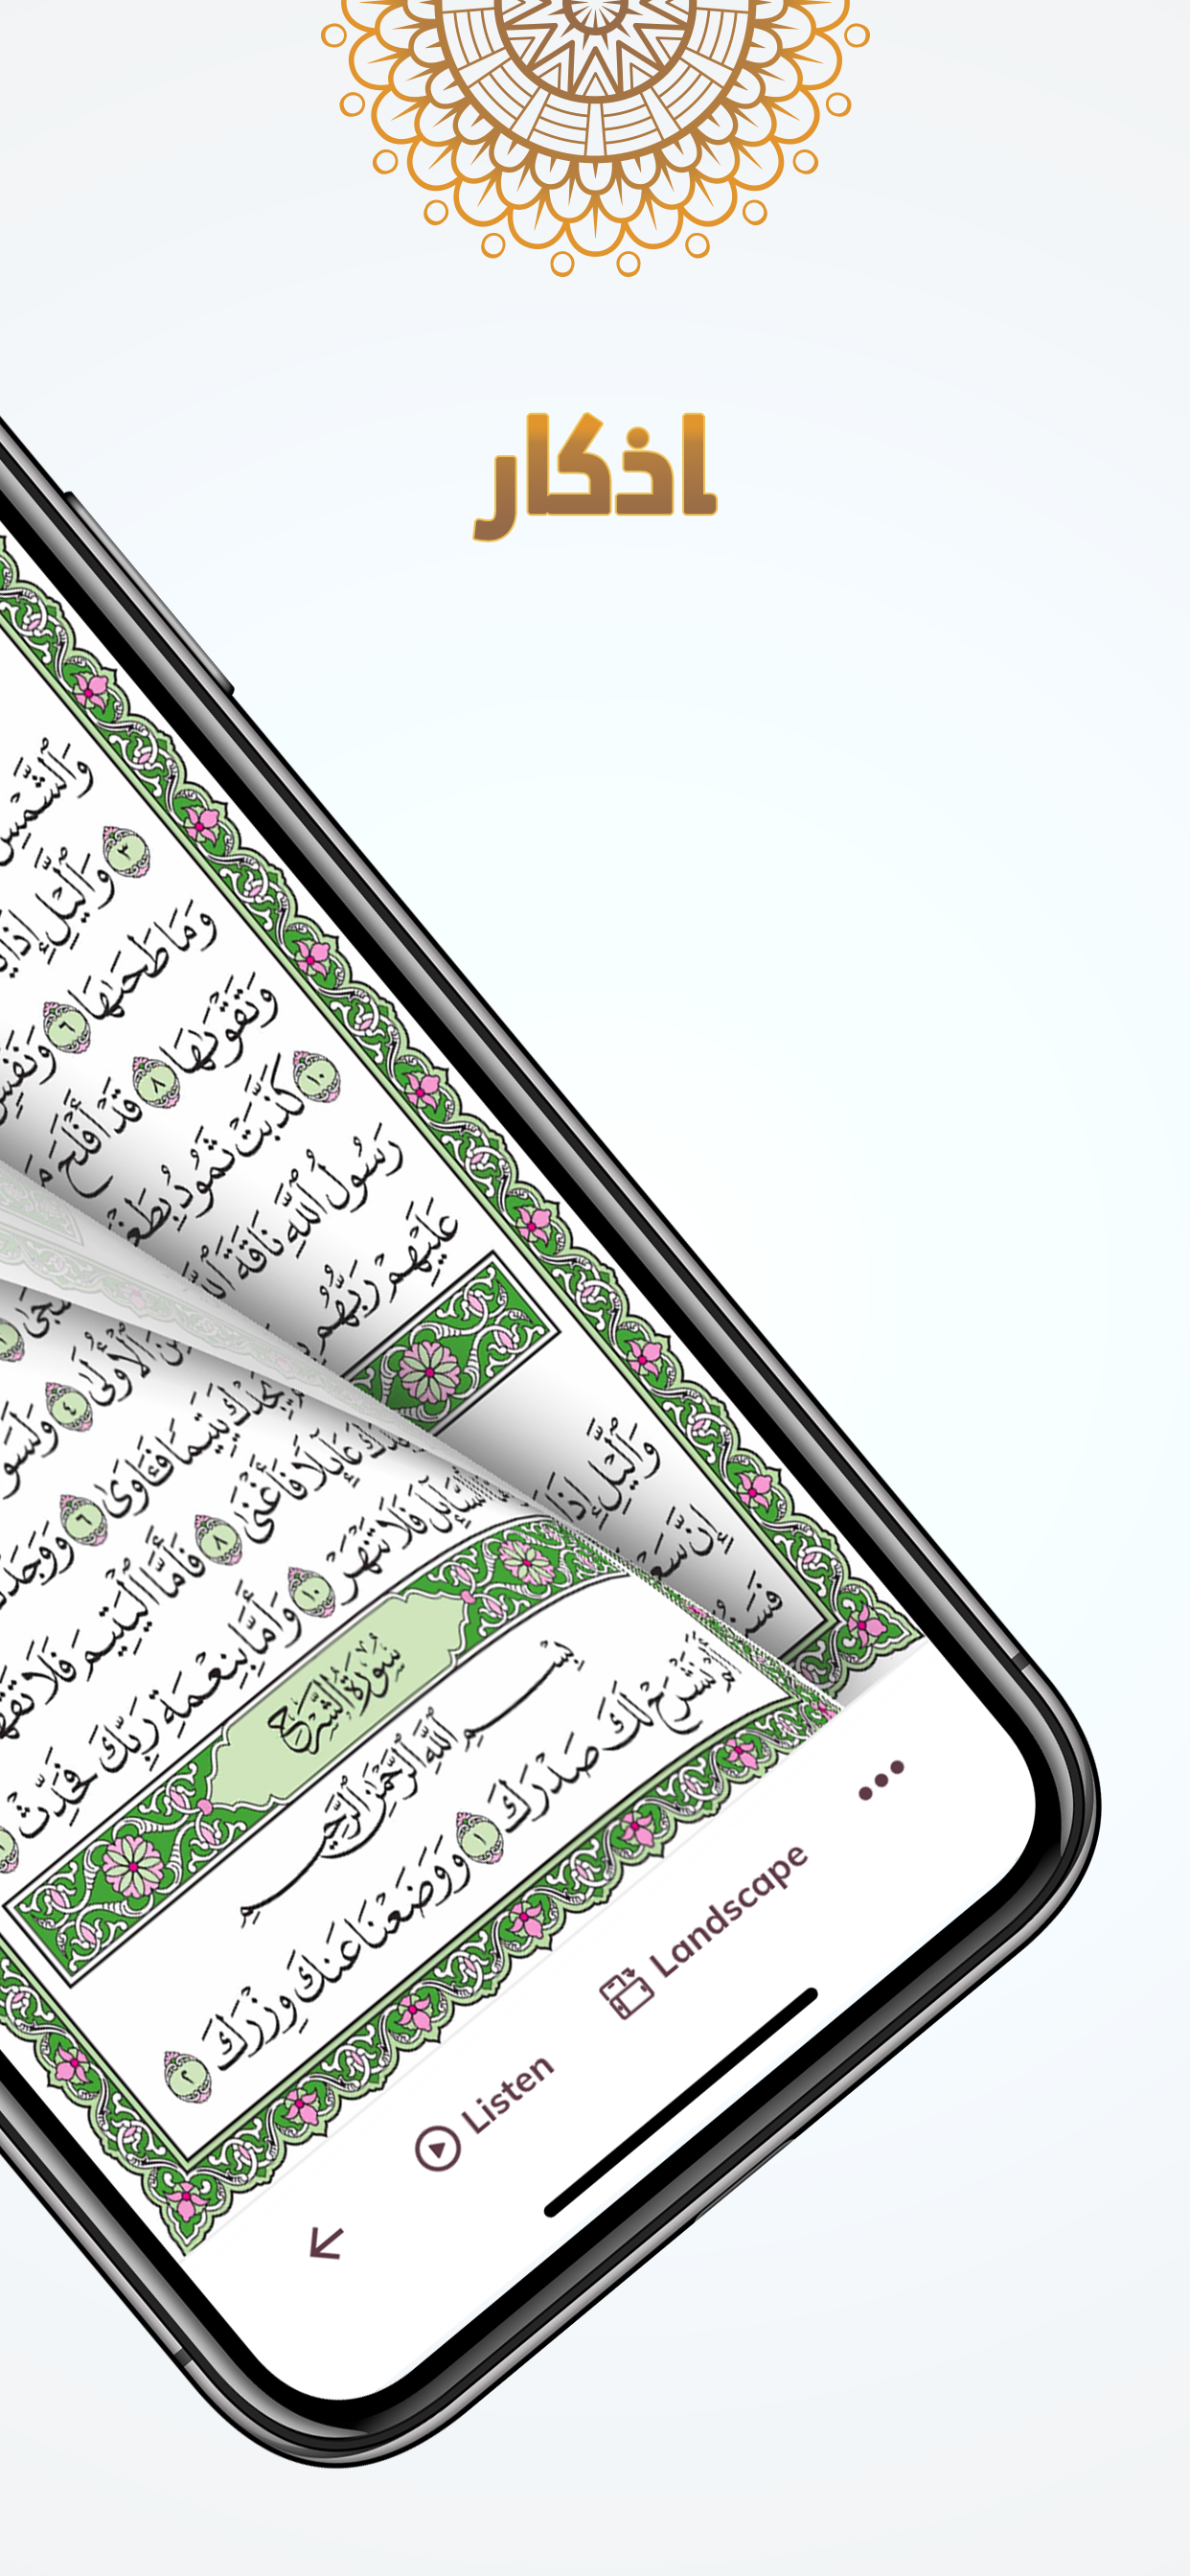 اذكار
وَٱلشَّمْسِ
٣ وَٱلَّيْلِ إِذَا
وَمَا طَحَىٰهَا ٦ وَنَفْسٍ
وَتَقْوَىٰهَا ٨ قَدْ أَفْلَحَ مَ
١٠ كَذَّبَتْ ثَمُودُ بِطَغْ
رَسُولُ ٱللَّهِ نَاقَةَ ٱللَّهِ
عَلَيْهِمْ رَبُّهُم
وَٱلَّيْلِ إِذَا
إِنَّ سَعْ
فَسَنُ
سَجَىٰ
مِنَ ٱلْأُولَىٰ ٤ وَلَسَوْ
يَجِدْكَ يَتِيمًا فَـَٔاوَىٰ ٦ وَوَجَدَكَ
عَآئِلًا فَأَغْنَىٰ ٨ فَأَمَّا ٱلْيَتِيمَ فَلَا تَقْهَ
ٱلسَّآئِلَ فَلَا تَنْهَرْ ١٠ وَأَمَّا بِنِعْمَةِ رَبِّكَ فَحَدِّثْ
سُورَةُ الشَّرْحِ
بِسْمِ ٱللَّهِ ٱلرَّحْمَٰنِ ٱلرَّحِيمِ
نَشْرَحْ لَكَ صَدْرَكَ ١ وَوَضَعْنَا عَنكَ وِزْرَكَ ٢
Listen
Landscape